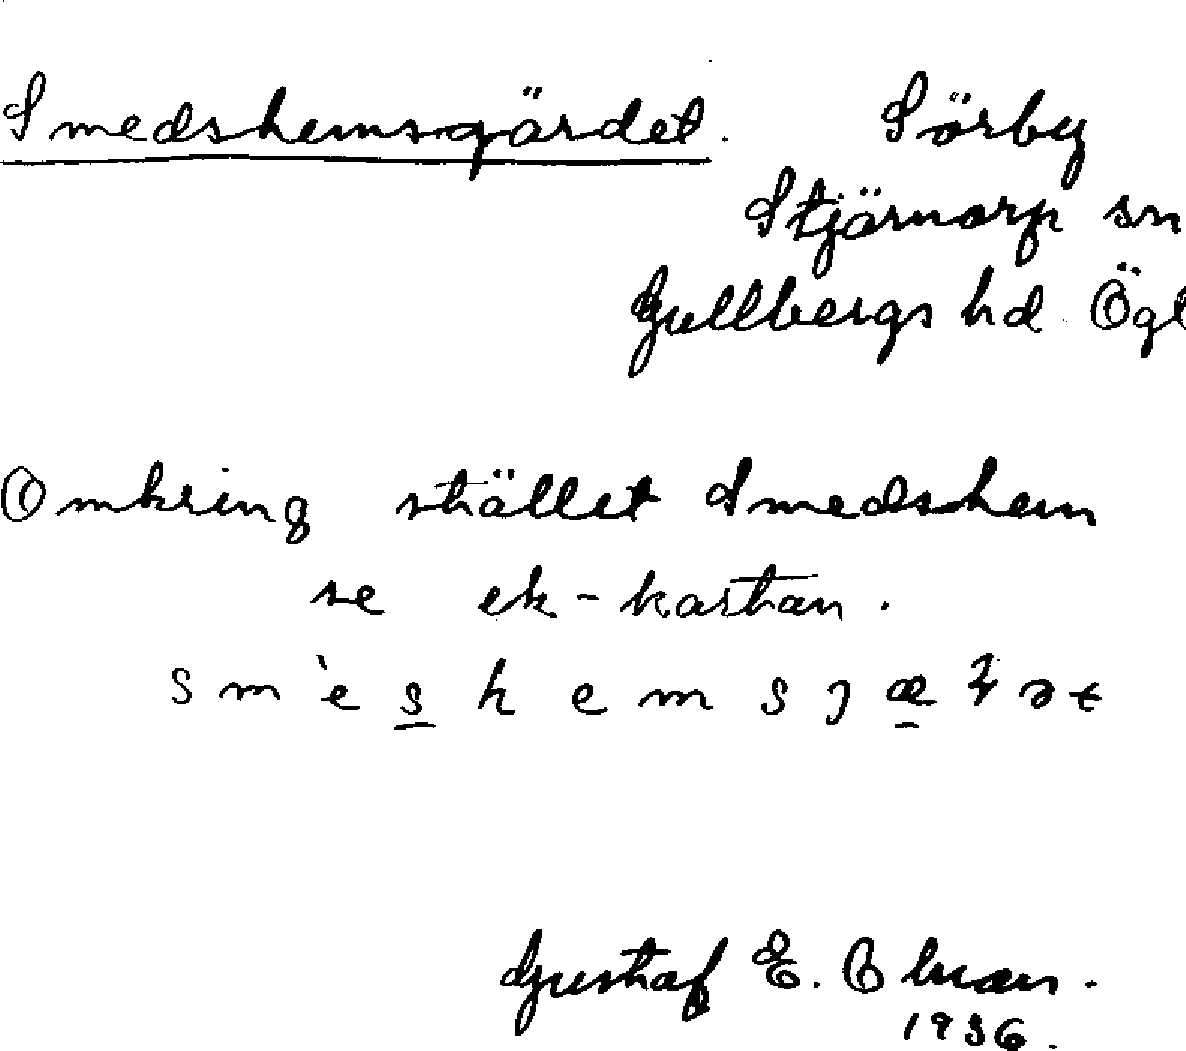 Smedshemsgärdet. Sörby
Stjärnorp sn
Gullbergs hd Ögl
Omkring stället Smedshem
se ek-kartan.
Gustaf E. Elman.
1936.